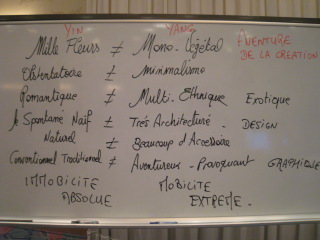 YIN YANG
Mille Fleurs ≠ Mono-Végétal AVENTURE
DE LA CREATION
Obstentatoire ≠ minimalisme
Romantique ≠ Multi-Ethnique Exotique
le Spontané Naïf ≠ Très Architecturé - DESIGN
Naturel ≠ Beaucoup d'Accessoire
Conventionnel Traditionnel ≠ Aventureux - Provoquant GRAPHIQUE
IMMOBILITE MOBILITE
ABSOLUE EXTREME.